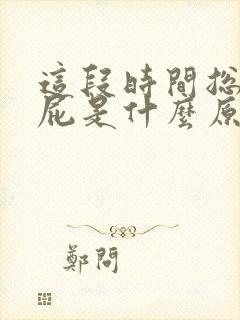 這段時間总
屁是什麼原
鄭問